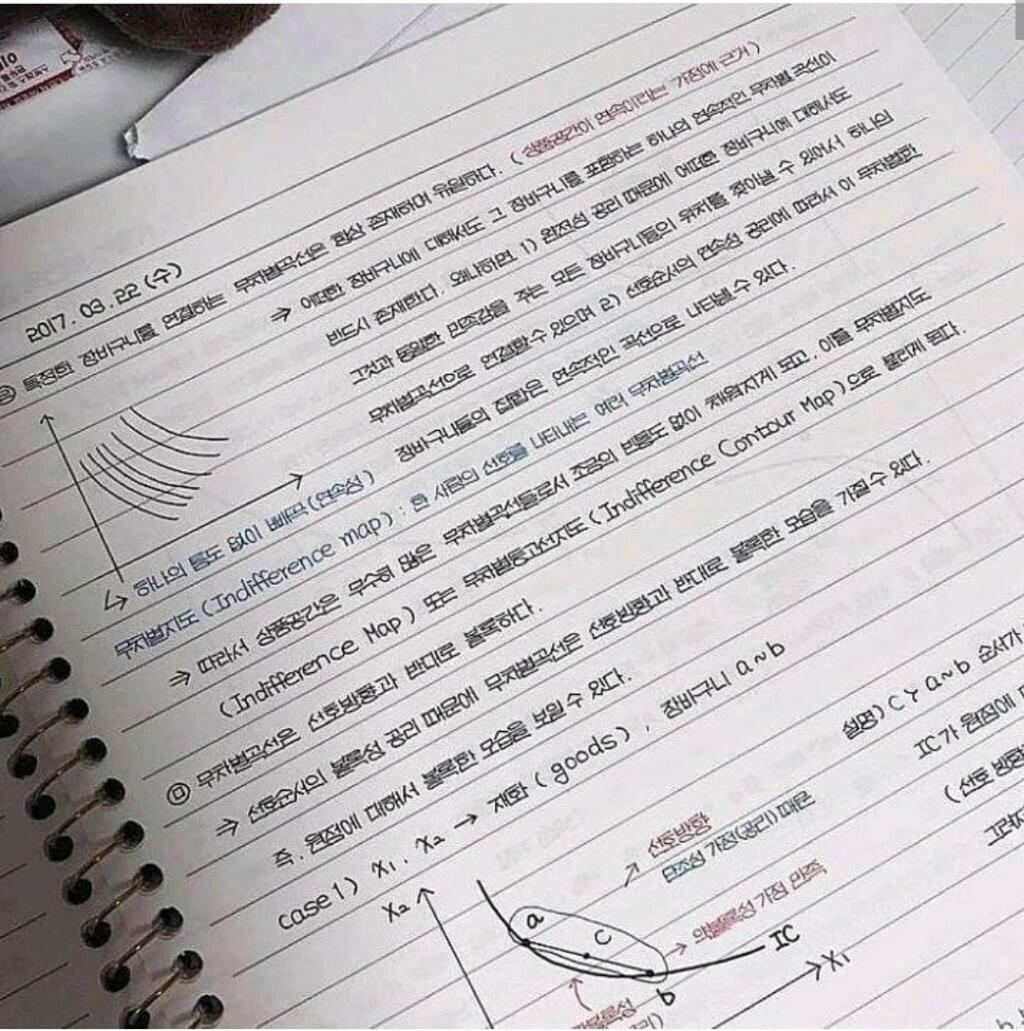 2017. 03. 22 (수)
특정한 장바구니를 연결하는 무차별곡선은 항상 존재하며 유일하다. (상품공간이 연속이라는 가정에 근거)
⇒ 어떠한 장바구니에 대해서도 그 장바구니를 포함하는 하나의 연속적인 무차별 곡선이
반드시 존재한다. 왜냐하면, 1) 완전성 공리 때문에 어떠한 장바구니에 대해서도
그것과 동일한 만족감을 주는 모든 장바구니들의 위치를 찾아낼 수 있어서 하나의
무차별곡선으로 연결할 수 있으며 2) 선호순서의 연속성 공리에 따라서 이 무차별한
장바구니들의 집합은 연속적인 곡선으로 나타낼 수 있다.
↳ 하나의 틈도 없이 빼곡 (연속성)
무차별지도 (Indifference map) : 한 사람의 선호를 나타내는 여러 무차별곡선
⇒ 따라서 상품공간은 무수히 많은 무차별곡선들로서 조금의 빈틈도 없이 채워지게 되고, 이를 무차별지도
(Indifference Map) 또는 무차별등고선지도 (Indifference Contour Map)으로 불리게 된다.
㉤ 무차별곡선은 선호방향과 반대로 볼록하다.
⇒ 선호순서의 볼록성 공리 때문에 무차별곡선은 선호방향과 반대로 볼록한 모습을 가질 수 있다.
즉, 원점에 대해서 볼록한 모습을 보일 수 있다.
case 1) X₁, X₂ → 재화 (goods), 장바구니 a~b
설명) C > a~b 순서가
IC가 원점에
(선호 방향
↗ 선호방향
단조성 가정(공리) 때문
X₂
a
c
b
→ 약볼록성 가정 만족
IC
X₁